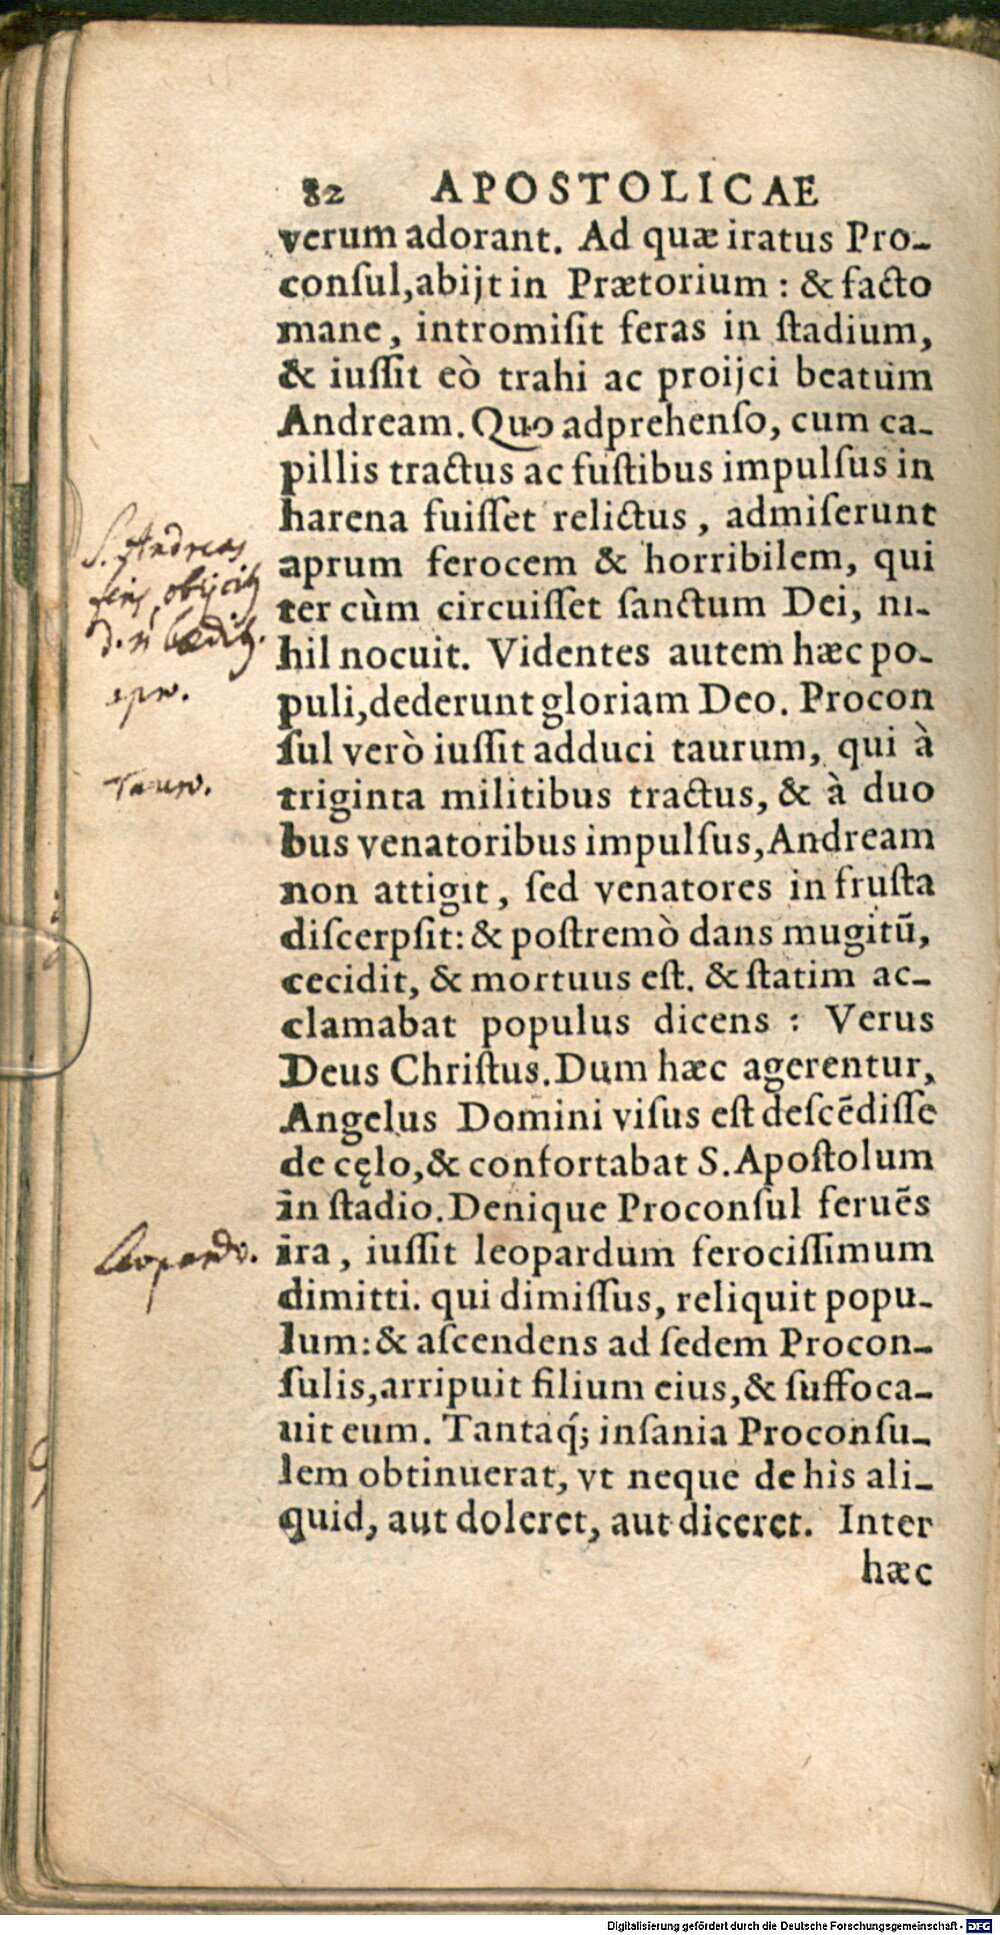 82 APOSTOLICAE
verum adorant. Ad quæ iratus Pro-
conſul, abijt in Prætorium : & facto
mane, intromiſit feras in ſtadium,
& iuſſit eò trahi ac proijci beatum
Andream. Quo adprehenſo, cum ca-
pillis tractus ac fuſtibus impulſus in
harena fuiſſet relictus, admiſerunt
S. Andreas
aprum ferocem & horribilem, qui
ter cùm circuiſſet ſanctum Dei, ni-
hil nocuit. Videntes autem hæc po-
puli, dederunt gloriam Deo. Procon
ſul verò iuſſit adduci taurum, qui à
triginta militibus tractus, & à duo
bus venatoribus impulſus, Andream
non attigit, ſed venatores in fruſta
diſcerpſit: & poſtremò dans mugitũ,
cecidit, & mortuus eſt. & ſtatim ac-
clamabat populus dicens : Verus
Deus Chriſtus. Dum hæc agerentur,
Angelus Domini viſus eſt deſcẽdiſſe
de cęlo, & confortabat S. Apoſtolum
in ſtadio. Denique Proconſul feruẽs
ira, iuſſit leopardum ferociſſimum
dimitti. qui dimiſſus, reliquit popu-
lum: & aſcendens ad ſedem Procon-
ſulis, arripuit filium eius, & ſuffoca-
uit eum. Tantaq́; inſania Proconſu-
lem obtinuerat, vt neque de his ali-
quid, aut doleret, aut diceret. Inter
hæc
Digitalisierung gefördert durch die Deutsche Forschungsgemeinschaft - DFG